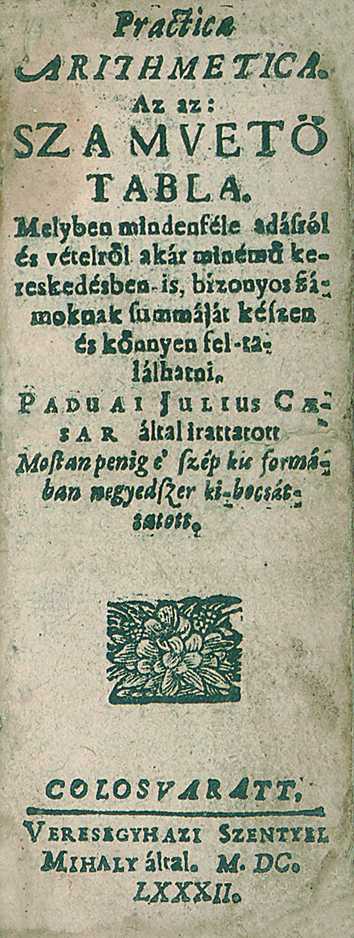 Practica
ARITHMETICA.
Az az:
SZAMVETÖ
TABLA.
Melyben mindenféle adásról
és vételről akár minémű ke-
reskedésben-is, bizonyos ſzá-
moknak ſummáját kéſzen
és kőnnyen fel-ta-
lálhatni.
PADUAI JULIUS CÆ-
SAR által irattatott
Moſtan penig e' ſzép kis formá-
ban negyedſzer ki-bocsát-
tatott.
COLOSVARATT,
VERESEGYHAZI SZENTYEL
MIHALY által. M. DC.
LXXXII.